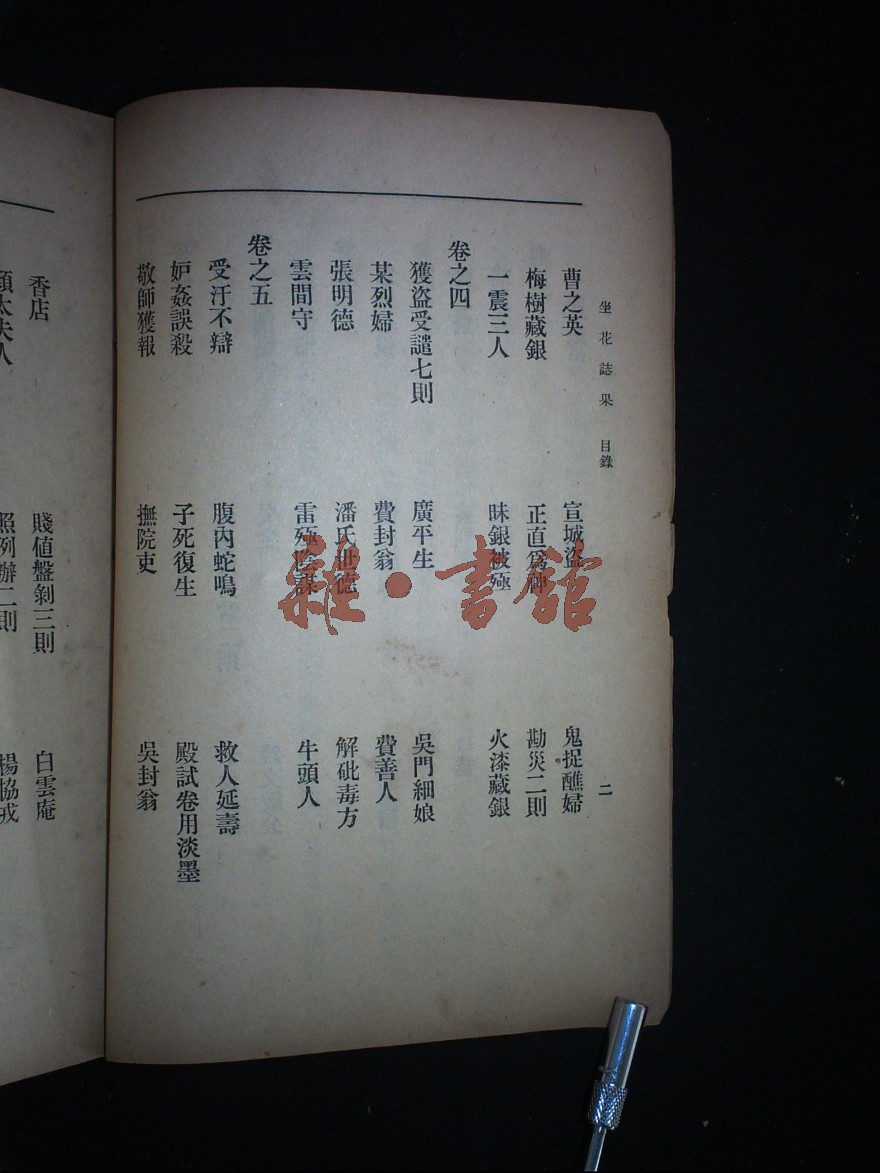 坐花誌果 目錄 二
曹之英 宣城盜 鬼捉醮婦
梅樹藏銀 正直爲神 勘災二則
一震三人 昧銀被殛 火漆藏銀
卷之四
獲盜受譴七則 廣平生 吳門細娘
某烈婦 費封翁 費善人
張明德 潘氏世德 解砒毒方
雲間守 雷殛陰謀 牛頭人
卷之五
受汙不辯 腹內蛇鳴 救人延壽
妒姦誤殺 子死復生 殿試卷用淡墨
敬師獲報 撫院吏 吳封翁
香店 賤值盤剝三則 白雲庵
顧太夫人 照例辦二則 楊協戎
雜·書館